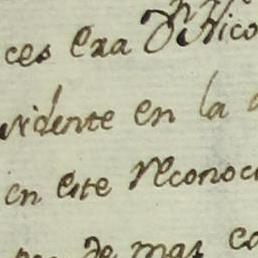 ces exa Dⁿ Nico
vidente en la
en este reconoc
de mas co